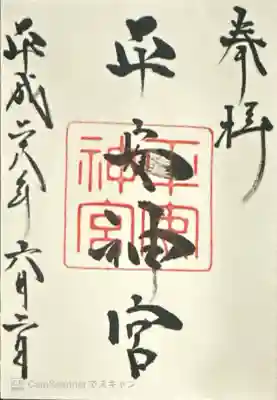 奉拝
平安神宮
平安
神宮
平成二八年六月二日
CS CamScanner でスキャン